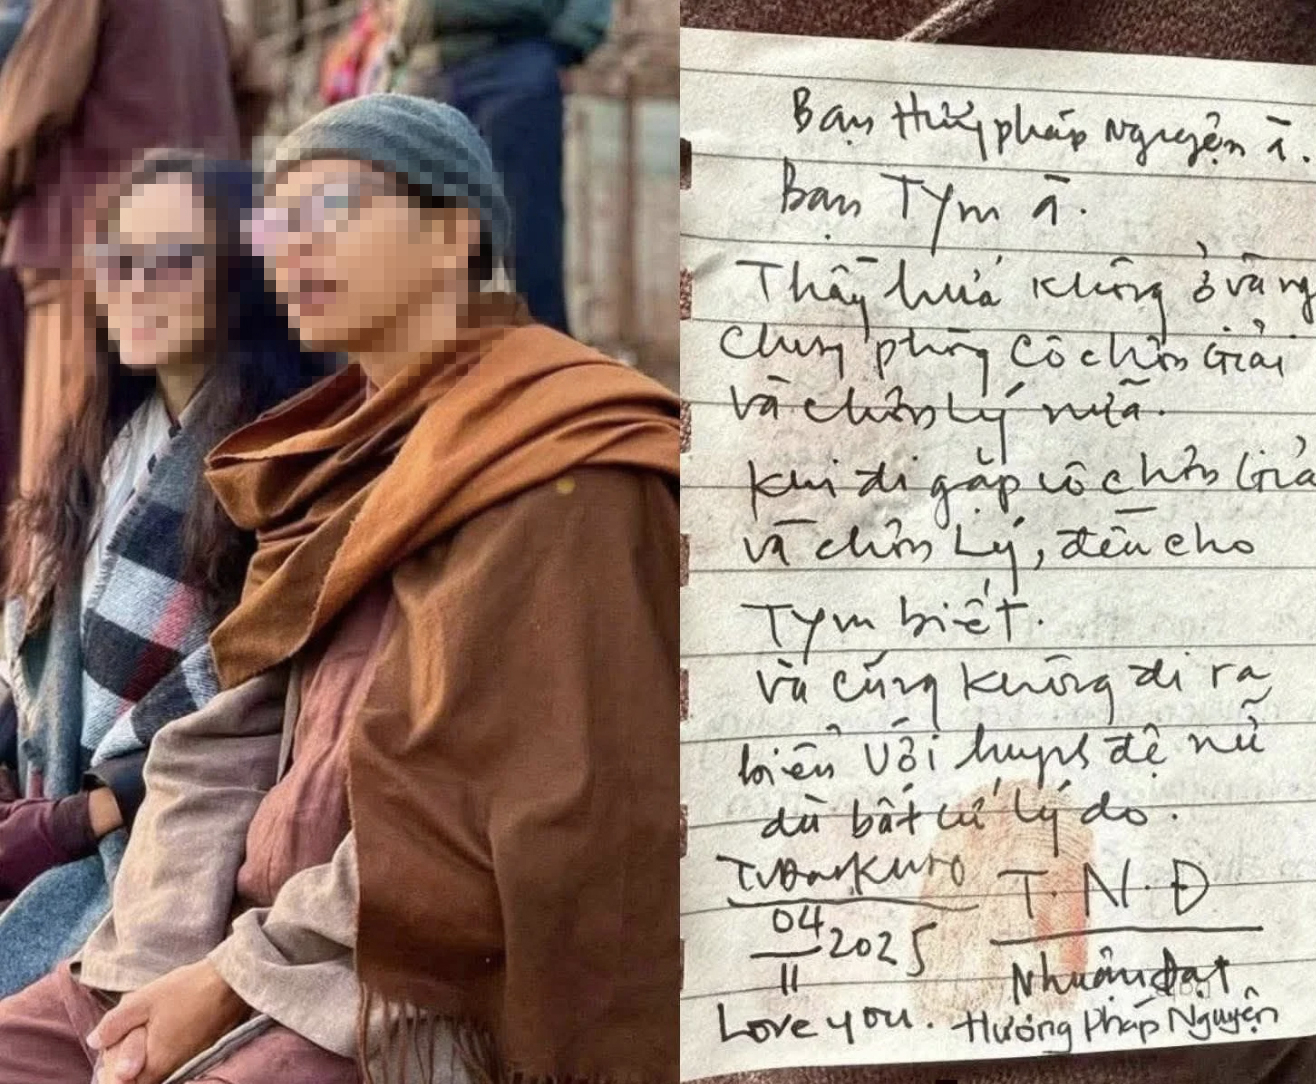 Bạn Hướng pháp Nguyện à.
Bạn Tym à.
Thầy hứa không ở và ng
chung phòng cô chơn Giải
và chơn Lý nữa.
khi đi gặp cô chơn Giả
và chơn Lý, đều cho
Tym biết.
và cũng không đi ra
biển với huynh đệ nữ
dù bất cứ lý do.
T.N.Đ
04/11 2025
Nhuận Đạt
Love you. Hướng Pháp Nguyện